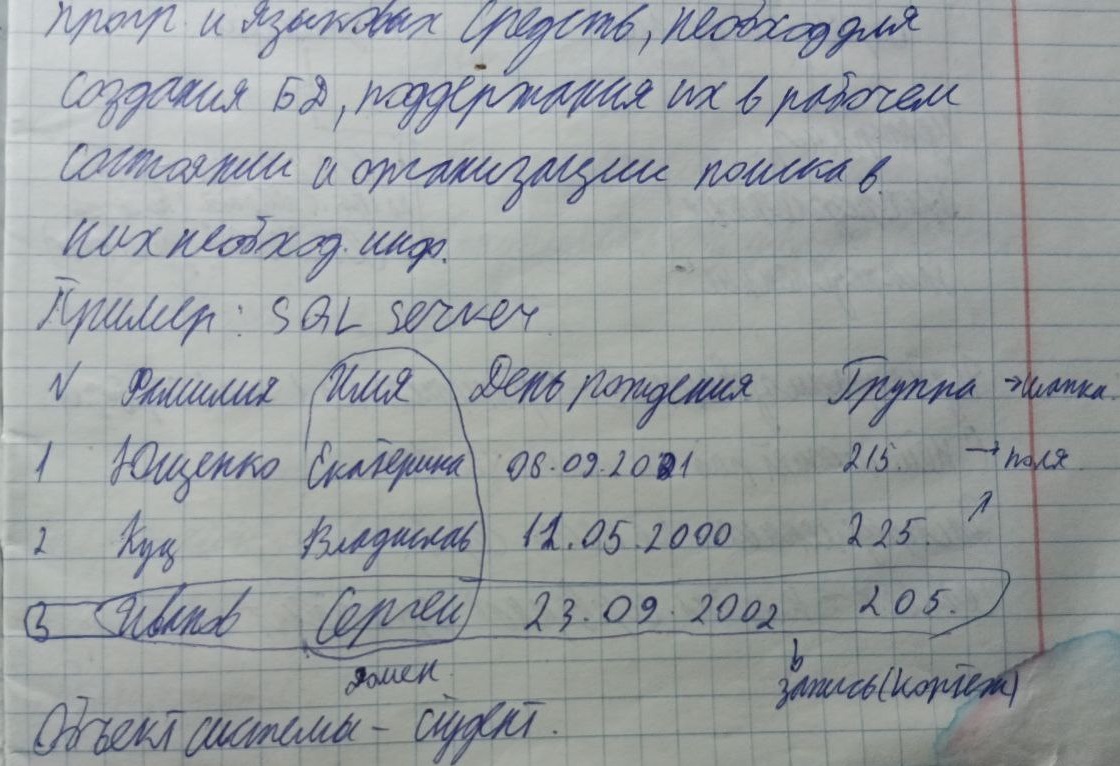 прогр. и языковых средств, необход для
создания БД, поддержания их в рабочем
состоянии и организации поиска в
них необход. инф.
Пример: SQL server
N Фамилия Имя День рождения Группа → шапка.
1 Ющенко Екатерина 08.09.2001 215. → поля
2 Куц Владислав 12.05.2000 225.
3 Иванов Сергей 23.09.2002 205.
домен.
запись (кортеж)
Объект системы - студент.